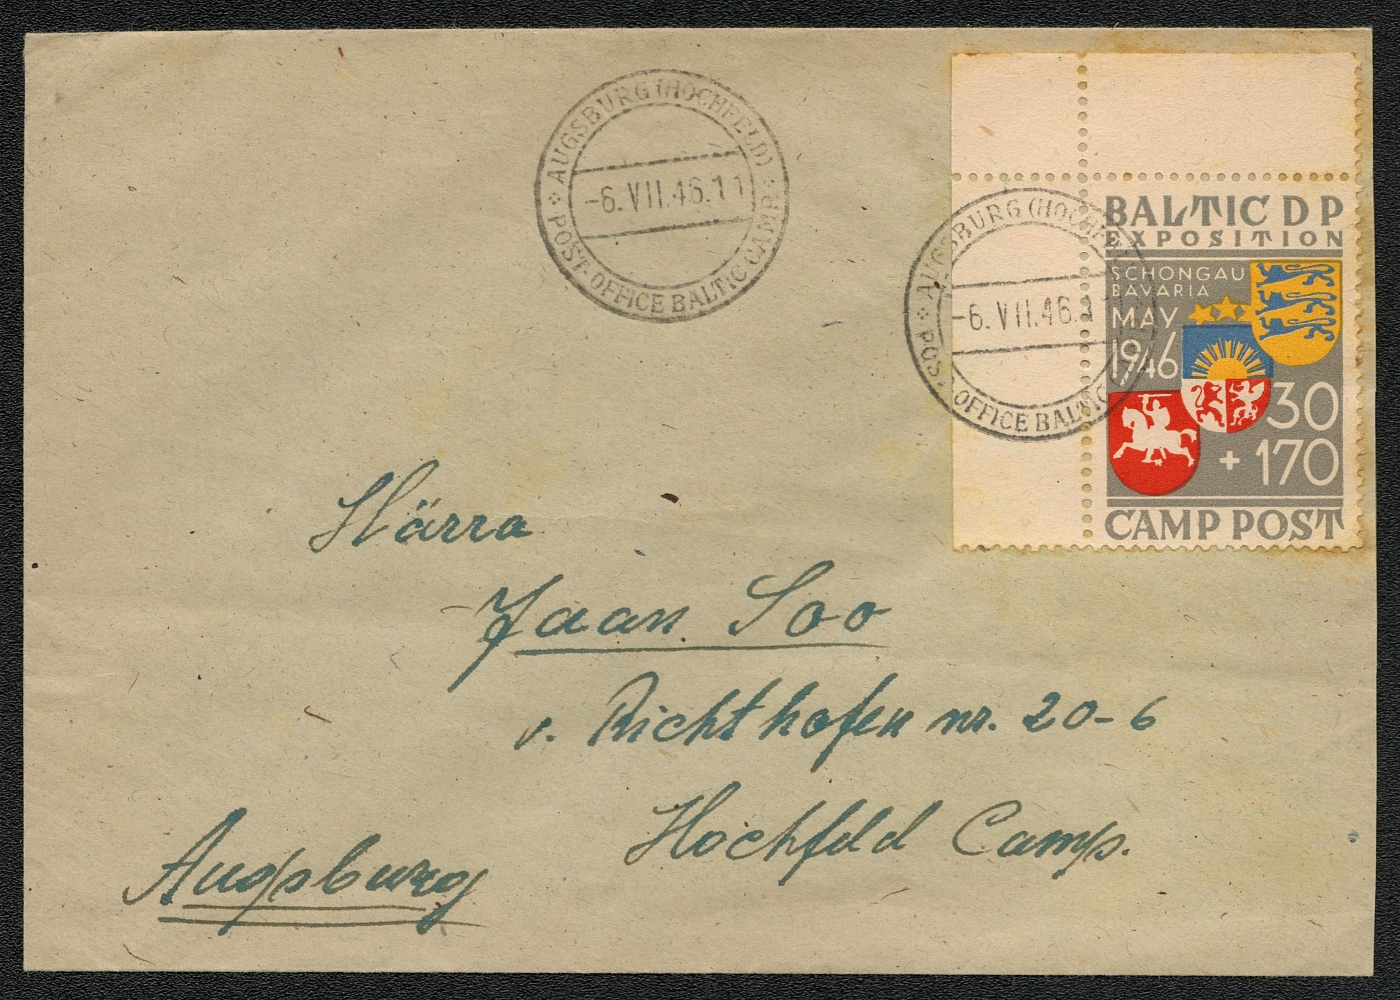 AUGSBURG (HOCHFELD)
-6.VII.46.11
POST OFFICE BALTIC CAMP
AUGSBURG (HOCHF
-6.VII.46.1
POST OFFICE BALTIC
BALTIC DP
EXPOSITION
SCHONGAU
BAVARIA
MAY
1946
30
+ 170
CAMP POST
Härra
Jaan Soo
v. Richthofen nr. 20-6
Hochfeld Camp.
Augsburg